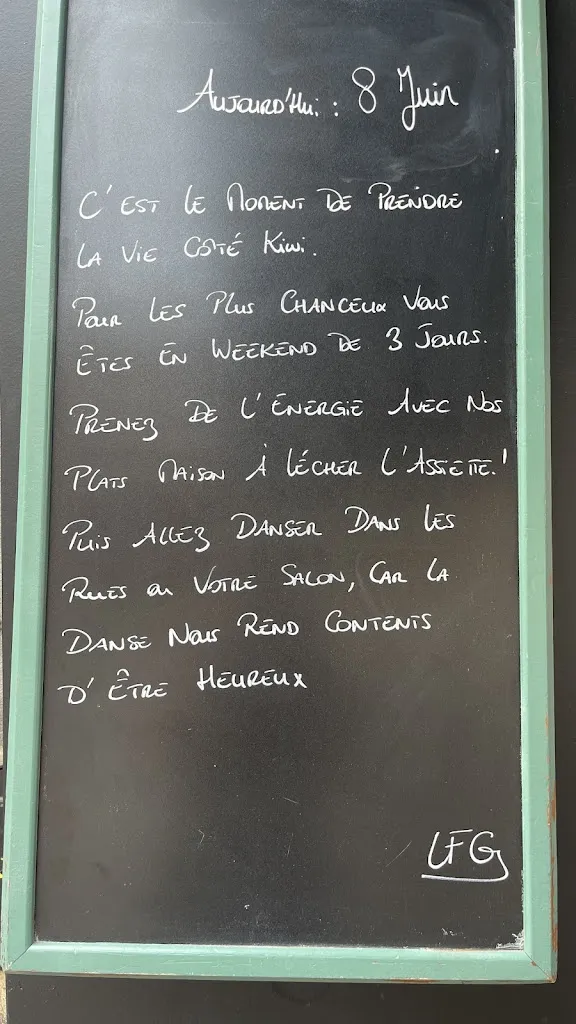 Aujourd'hui : 8 Juin
C'est le moment de prendre
la vie côté Kiwi.
Pour les plus chanceux vous
êtes en weekend de 3 jours.
Prenez de l'énergie avec nos
plats maison à lécher l'assiette.!
Puis allez danser dans les
rues ou votre salon, car la
danse nous rend contents
d'être heureux
LFG